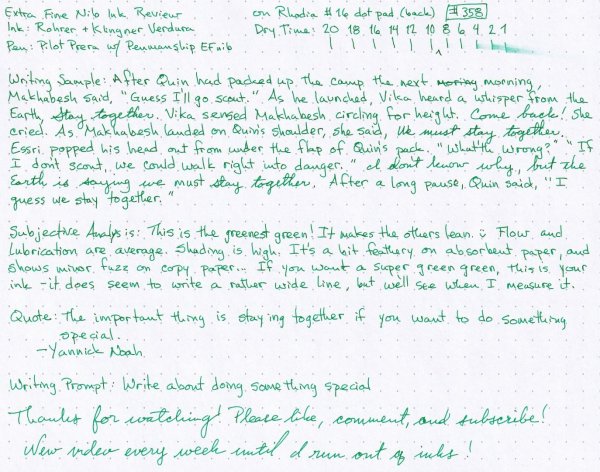 Extra Fine Nib Ink Review on Rhodia #16 dot pad (back) #358
Ink: Rohrer + Klingner Verdura Dry Time: 20 18 16 14 12 10 8 6 4 2 1
Pen: Pilot Prera w/ Penmanship EF nib
Writing Sample: After Quin had packed up the camp the next morning,
Makhabesh said, "Guess I'll go scout." As he launched, Vika heard a whisper from the
Earth, Stay together. Vika sensed Makhabesh circling for height. Come back! She
cried. As Makhabesh landed on Quin's shoulder, she said, We must stay together.
Essri popped his head out from under the flap of Quin's pack. "What's wrong?" "If
I don't scout, we could walk right into danger." I don't know why, but the
Earth is saying we must stay together. After a long pause, Quin said, "I
guess we stay together."
Subjective Analysis: This is the greenest green! It makes the others lean. Flow and
Lubrication are average. Shading is high. It's a bit feathery on absorbent paper, and
shows minor fuzz on copy paper... If you want a super green green, this is your
ink - it does seem to write a rather wide line, but we'll see when I measure it.
Quote: The important thing is staying together if you want to do something
special.
-Yannick Noah
Writing Prompt: Write about doing something special
Thanks for watching! Please like, comment, and subscribe!
New video every week until I run out of inks!